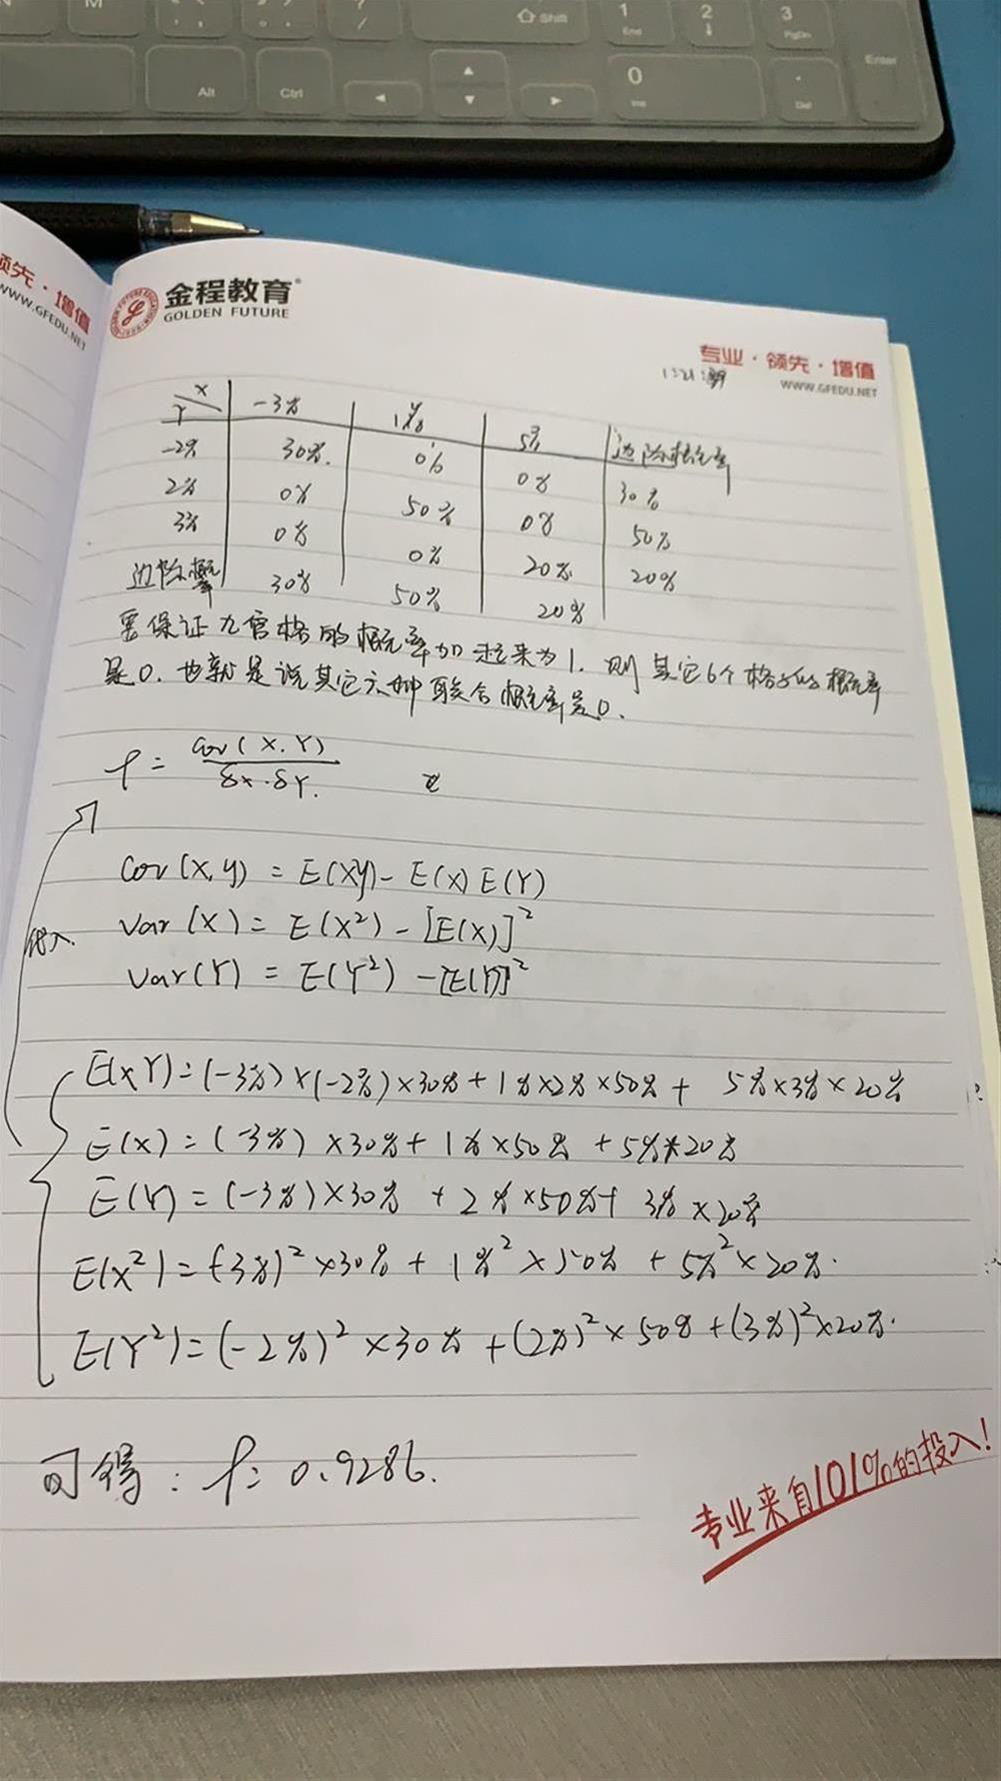 M
/
Shift
1
End
2
3
PgDn
Enter
Alt
Ctrl
0
Ins
Del
领先·增值
WWW.GFEDU.NET
金程教育
GOLDEN FUTURE
专业·领先·增值
WWW.GFEDU.NET
X
Y -3% 1% 5% 边际概率
-2% 30% 0% 0% 30%
2% 0% 50% 0% 50%
3% 0% 0% 20% 20%
边际概率 30% 50% 20%
要保证九宫格的概率加起来为1.则其它6个格子的概率
是0.也就是说其它六种联合概率是0.
ρ = Cov(X.Y)
δx·δY.
Cov(X,y) = E(Xy)- E(X) E(Y)
Var(X) = E(X²) - [E(X)]²
代入.
Var(Y) = E(Y²) -[E(Y)]²
E(XY)=(-3%)×(-2%)×30%+1%×2%×50%+ 5%×3%×20%
E(X)=(-3%)×30%+1%×50%+5%*20%
E(Y)=(-3%)×30%+2%×50%+3%×20%
E(X²)=(-3%)²×30%+1%²×50%+5%²×20%.
E(Y²)=(-2%)²×30%+(2%)²×50%+(3%)²×20%.
可得: ρ= 0.9286.
专业来自101%的投入!